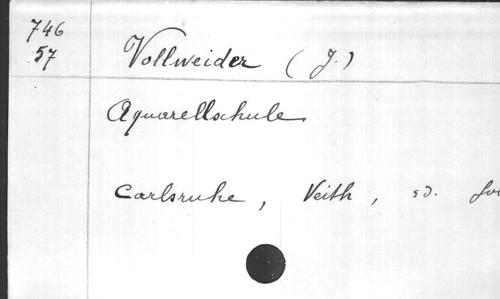 746
57
Vollweider (J.)
Aquarellschule
Carlsruhe, Veith, sd.